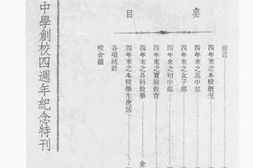 要目
前言
四年來之本校概況
四年來之高中部
四年來之初中部
四年來之女子部
四年來之實驗教育
四年來之各科教學
四年來之本校學生生活
各項統計
校舍圖
中學創校四週年紀念特刊